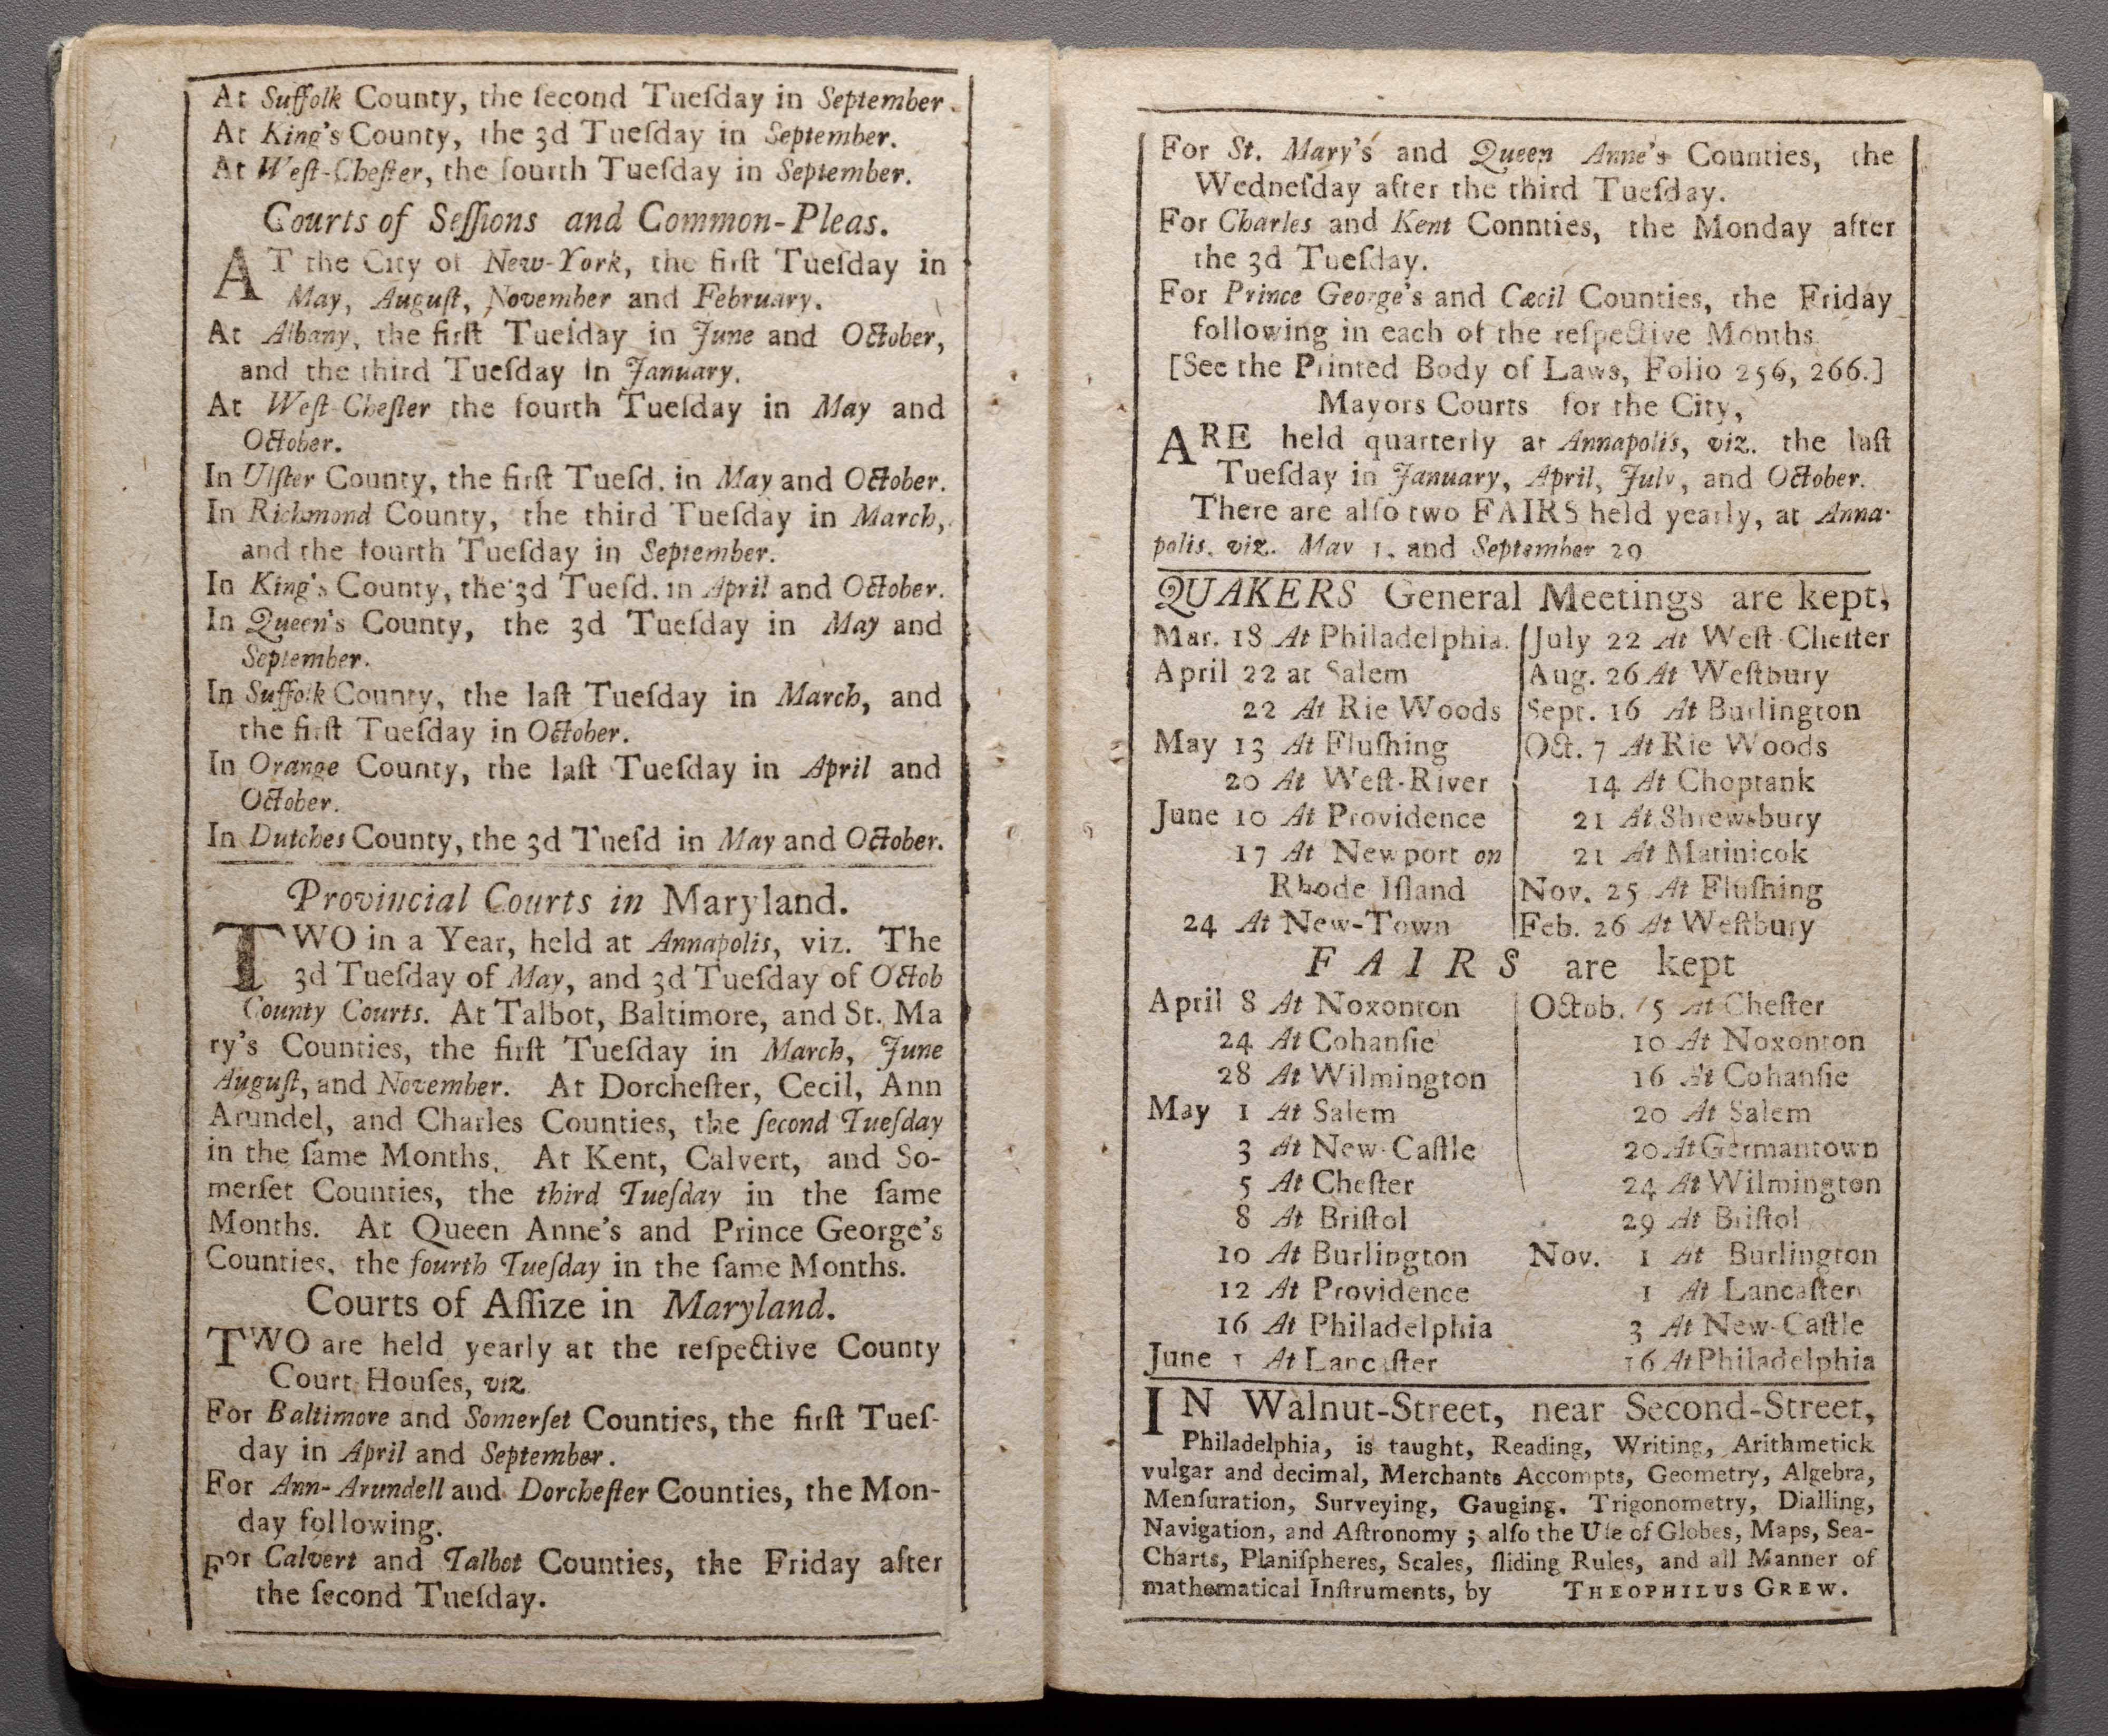 At Suffolk County, the ſecond Tueſday in September.
At King's County, the 3d Tueſday in September.
At Weſt-Cheſter, the fourth Tueſday in September.
Courts of Seſſions and Common-Pleas.
AT the City of New-York, the firſt Tueſday in
May, Auguſt, November and February.
At Albany, the firſt Tueſday in June and October,
and the third Tueſday in January.
At Weſt-Cheſter the fourth Tueſday in May and
October.
In Ulſter County, the firſt Tueſd. in May and October.
In Richmond County, the third Tueſday in March,
and the fourth Tueſday in September.
In King's County, the 3d Tueſd. in April and October.
In Queen's County, the 3d Tueſday in May and
September.
In Suffolk County, the laſt Tueſday in March, and
the firſt Tueſday in October.
In Orange County, the laſt Tueſday in April and
October.
In Dutches County, the 3d Tueſd in May and October.
Provincial Courts in Maryland.
TWO in a Year, held at Annapolis, viz. The
3d Tueſday of May, and 3d Tueſday of Octob
County Courts. At Talbot, Baltimore, and St. Ma
ry's Counties, the firſt Tueſday in March, June
Auguſt, and November. At Dorcheſter, Cecil, Ann
Arundel, and Charles Counties, the ſecond Tueſday
in the ſame Months. At Kent, Calvert, and So-
merſet Counties, the third Tueſday in the ſame
Months. At Queen Anne's and Prince George's
Counties, the fourth Tueſday in the ſame Months.
Courts of Aſſize in Maryland.
TWO are held yearly at the reſpective County
Court Houſes, viz.
For Baltimore and Somerſet Counties, the firſt Tueſ-
day in April and September.
For Ann-Arundell and Dorcheſter Counties, the Mon-
day following.
For Calvert and Talbot Counties, the Friday after
the ſecond Tueſday.
For St. Mary's and Queen Anne's Counties, the
Wedneſday after the third Tueſday.
For Charles and Kent Connties, the Monday after
the 3d Tueſday.
For Prince George's and Cæcil Counties, the Friday
following in each of the reſpective Months.
[See the Printed Body of Laws, Folio 256, 266.]
Mayors Courts for the City,
ARE held quarterly at Annapolis, viz. the laſt
Tueſday in January, April, July, and October.
There are alſo two FAIRS held yearly, at Anna-
polis, viz. May 1. and September 29
QUAKERS General Meetings are kept,
Mar. 18 At Philadelphia.
April 22 at Salem
22 At Rie Woods
May 13 At Fluſhing
20 At Weſt-River
June 10 At Providence
17 At Newport on
Rhode Iſland
24 At New-Town
July 22 At Weſt-Cheſter
Aug. 26 At Weſtbury
Sept. 16 At Burlington
Oct. 7 At Rie Woods
14 At Choptank
21 At Shrewsbury
21 At Matinicok
Nov. 25 At Fluſhing
Feb. 26 At Weſtbury
FAIRS are kept
April 8 At Noxonton
24 At Cohanſie
28 At Wilmington
May 1 At Salem
3 At New-Caſtle
5 At Cheſter
8 At Briſtol
10 At Burlington
12 At Providence
16 At Philadelphia
June 1 At Lancaſter
Octob. 5 At Cheſter
10 At Noxonton
16 At Cohanſie
20 At Salem
20 At Germantown
24 At Wilmington
29 At Briſtol
Nov. 1 At Burlington
1 At Lancaſter
3 At New-Caſtle
16 At Philadelphia
IN Walnut-Street, near Second-Street,
Philadelphia, is taught, Reading, Writing, Arithmetick
vulgar and decimal, Merchants Accompts, Geometry, Algebra,
Menſuration, Surveying, Gauging, Trigonometry, Dialling,
Navigation, and Aſtronomy ; alſo the Uſe of Globes, Maps, Sea-
Charts, Planiſpheres, Scales, ſliding Rules, and all Manner of
mathematical Inſtruments, by THEOPHILUS GREW.